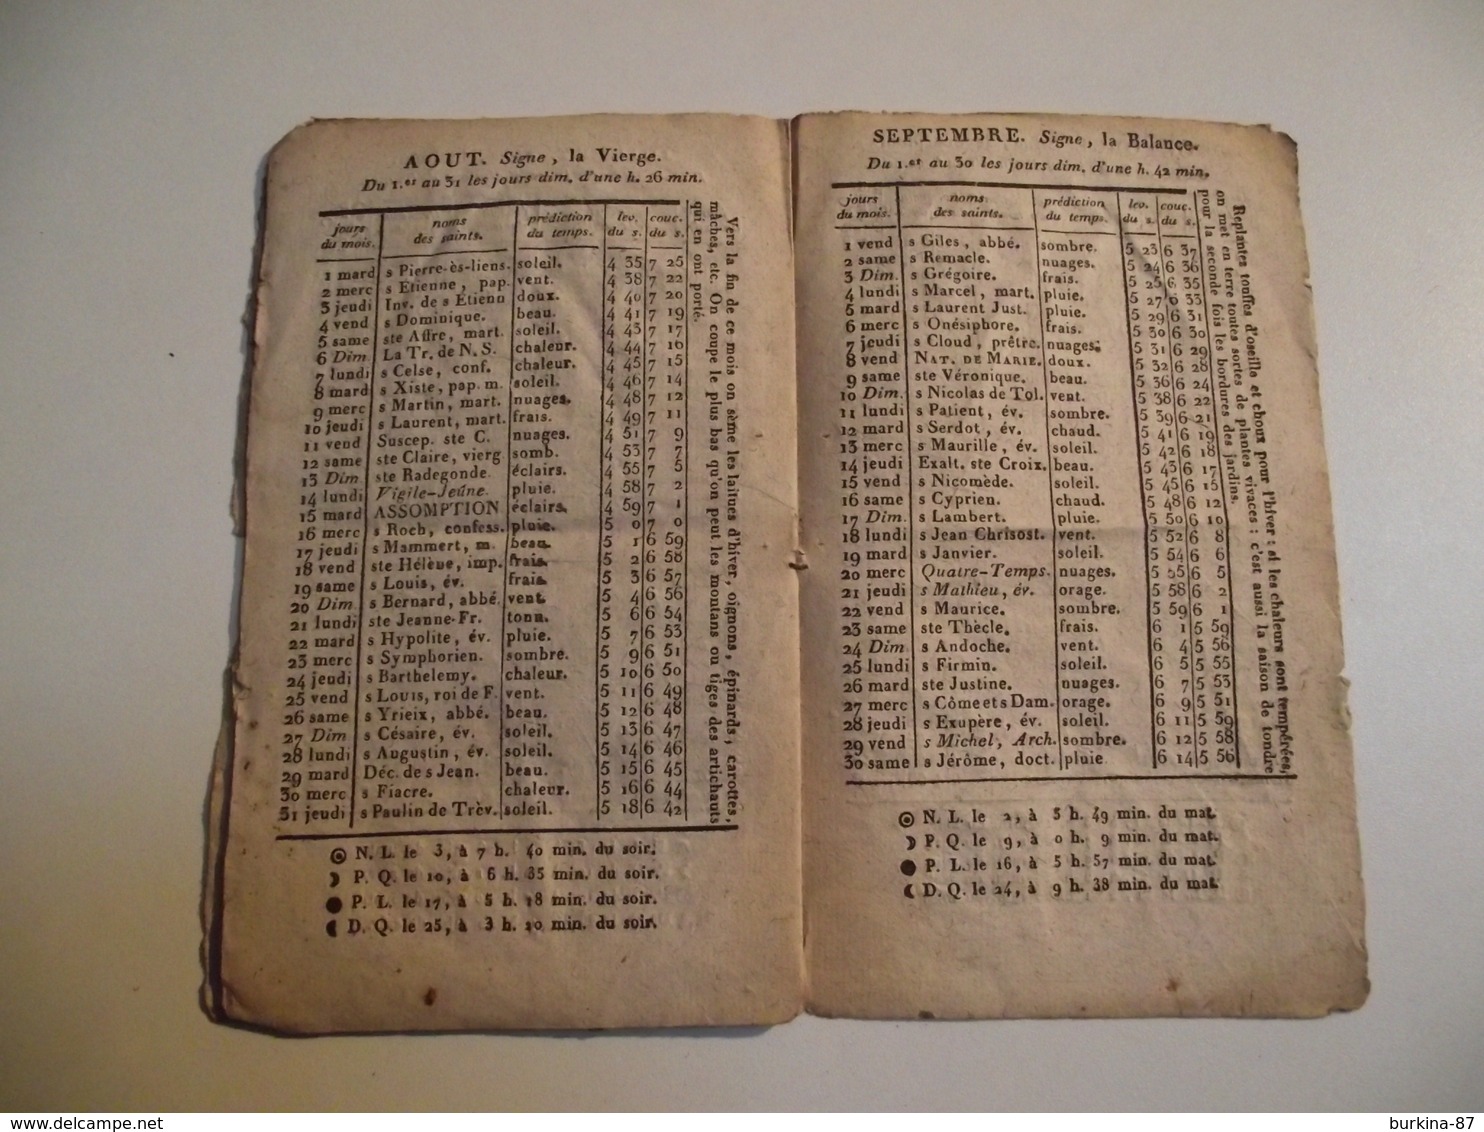 AOUT. Signe, la Vierge.
Du 1.er au 31 les jours dim. d'une h. 26 min.
jours du mois. noms des saints. prédiction du temps. lev. du s. couc. du s.
1 mard s Pierre-ès-liens. soleil. 4 35 7 25
2 merc s Etienne, pap. vent. 4 38 7 22
3 jeudi Inv. de s Etienn doux. 4 40 7 20
4 vend s Dominique. beau. 4 41 7 19
5 same ste Affre, mart. soleil. 4 43 7 17
6 Dim. La Tr. de N. S. chaleur. 4 44 7 16
7 lundi s Celse, conf. chaleur. 4 45 7 15
8 mard s Xiste, pap. m. soleil. 4 46 7 14
9 merc s Martin, mart. nuages. 4 48 7 12
10 jeudi s Laurent, mart. frais. 4 49 7 11
11 vend Suscep. ste C. nuages. 4 51 7 9
12 same ste Claire, vierg somb. 4 53 7 7
13 Dim. ste Radegonde. éclairs. 4 55 7 5
14 lundi Vigile-Jeûne. pluie. 4 58 7 2
15 mard ASSOMPTION éclairs. 4 59 7 1
16 merc s Roch, confess. pluie. 5 0 7 0
17 jeudi s Mammert, m. beau. 5 1 6 59
18 vend ste Hélène, imp. frais. 5 2 6 58
19 same s Louis, év. frais. 5 3 6 57
20 Dim. s Bernard, abbé. vent. 5 4 6 56
21 lundi ste Jeanne-Fr. tonn. 5 6 6 54
22 mard s Hypolite, év. pluie. 5 7 6 53
23 merc s Symphorien. sombre. 5 9 6 51
24 jeudi s Barthelemy. chaleur. 5 10 6 50
25 vend s Louis, roi de F. vent. 5 11 6 49
26 same s Yrieix, abbé. beau. 5 12 6 48
27 Dim s Césaire, év. soleil. 5 13 6 47
28 lundi s Augustin, év. soleil. 5 14 6 46
29 mard Déc. de s Jean. beau. 5 15 6 45
30 merc s Fiacre. chaleur. 5 16 6 44
31 jeudi s Paulin de Trèv. soleil. 5 18 6 42
Vers la fin de ce mois on sème les laitues d'hiver, oignons, épinards, carottes,
mâches, etc. On coupe le plus bas qu'on peut les montans ou tiges des artichauts
qui en ont porté.
N. L. le 3, à 7 h. 40 min. du soir.
P. Q. le 10, à 6 h. 35 min. du soir.
P. L. le 17, à 5 h. 18 min. du soir.
D. Q. le 25, à 3 h. 20 min. du soir.
SEPTEMBRE. Signe, la Balance.
Du 1.er au 30 les jours dim. d'une h. 42 min.
jours du mois. noms des saints. prédiction du temps. lev. du s. couc. du s.
1 vend s Giles, abbé. sombre. 5 23 6 37
2 same s Remacle. nuages. 5 24 6 36
3 Dim. s Grégoire. frais. 5 25 6 35
4 lundi s Marcel, mart. pluie. 5 27 6 33
5 mard s Laurent Just. pluie. 5 29 6 31
6 merc s Onésiphore. frais. 5 30 6 30
7 jeudi s Cloud, prêtre. nuages. 5 31 6 29
8 vend NAT. DE MARIE. doux. 5 32 6 28
9 same ste Véronique. beau. 5 36 6 24
10 Dim. s Nicolas de Tol. vent. 5 38 6 22
11 lundi s Patient, év. sombre. 5 39 6 21
12 mard s Serdot, év. chaud. 5 41 6 19
13 merc s Maurille, év. soleil. 5 42 6 18
14 jeudi Exalt. ste Croix. beau. 5 43 6 17
15 vend s Nicomède. soleil. 5 45 6 15
16 same s Cyprien. chaud. 5 48 6 12
17 Dim. s Lambert. pluie. 5 50 6 10
18 lundi s Jean Chrisost. vent. 5 52 6 8
19 mard s Janvier. soleil. 5 54 6 6
20 merc Quatre-Temps. nuages. 5 55 6 5
21 jeudi s Mathieu, év. orage. 5 58 6 2
22 vend s Maurice. sombre. 5 59 6 1
23 same ste Thècle. frais. 6 1 5 59
24 Dim s Andoche. vent. 6 4 5 56
25 lundi s Firmin. soleil. 6 5 5 55
26 mard ste Justine. nuages. 6 7 5 53
27 merc s Côme et s Dam. orage. 6 9 5 51
28 jeudi s Exupère, év. soleil. 6 11 5 59
29 vend s Michel, Arch. sombre. 6 12 5 58
30 same s Jérôme, doct. pluie 6 14 5 56
Replantes touffes d'oseille et choux pour l'hiver : si les chaleurs sont tempérées,
on met en terre toutes sortes de plantes vivaces : c'est aussi la saison de tondre
pour la seconde fois les bordures des jardins.
N. L. le 2, à 5 h. 49 min. du mat.
P. Q. le 9, à 0 h. 9 min. du mat.
P. L. le 16, à 5 h. 57 min. du mat.
D. Q. le 24, à 9 h. 38 min. du mat.
burkina-87